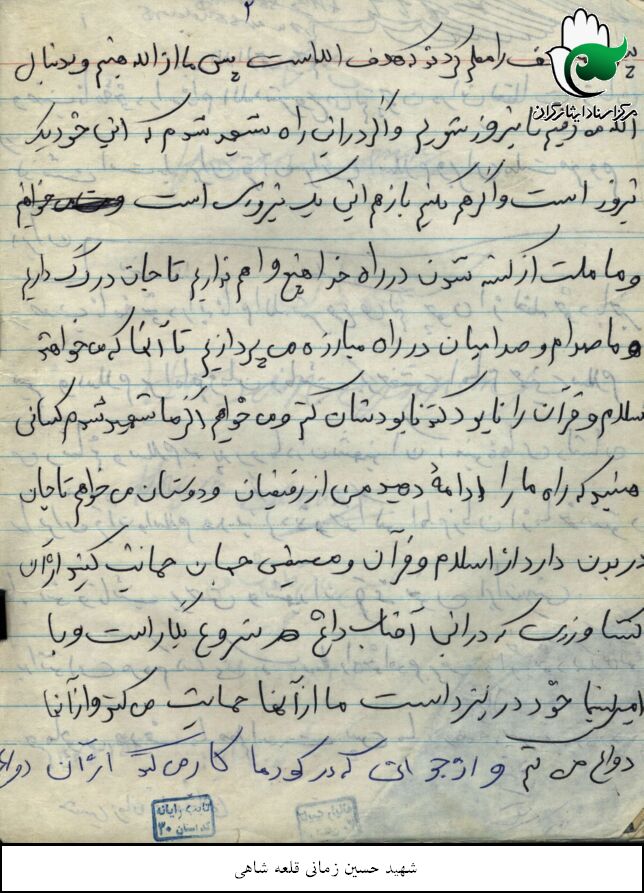 ۲
مرکز اسناد ایثارگران
هدف را معلم کردند که هدف الله است پس ما از الله هستیم و بدنبال
الله می رویم تا پیروز شویم و اگر در این راه شهید شدم که این خود یک
پیروز است و اگر هم بازهم این یک پیروزی است خواهم
و ما ملت از کشته شدن در راه خدا هیچ واهم نداریم تا جان در رگ داریم
ما صدام و صدامیان در راه مبارزه می پردازیم تا آنها که می خواهند
سلام و قرآن را نابود کنند نابودشان کنم و می خواهم اگر ما شهید شدم کسانی
هستید که راه ما را ادامهٔ دهید من از رفیقان و دوستان می خواهم تا جان
در بدن دارد از اسلام و قرآن و مستضعفین جهان حمایت کنید از آن
کشاورزی که در این آفتاب داغ شروع بکار است و با
خود در نبرد است ما از آنها حمایت می کند و از آنها
دفاع می کنم و از که در کارمی کند از آن دفاع
ثابت رایانه
کد استان ۳۰
شهید حسین زمانی قلعه شاهی